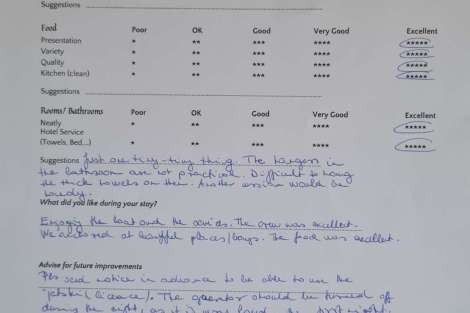 Suggestions
Food Poor OK Good Very Good Excellent
Presentation * ** *** **** *****
Variety * ** *** **** *****
Quality * ** *** **** *****
Kitchen (clean) * ** *** **** *****
Suggestions
Rooms/ Bathrooms Poor OK Good Very Good Excellent
Neatly * ** *** **** *****
Hotel Service
(Towels, Bed...) * ** *** **** *****
Suggestions Just one tiny-tiny thing. The hangers in
the bathroom are not practical. Difficult to hang
the thick towels on them. Another version would be
handy.
What did you like during your stay?
Enjoying the boat and the . The crew was excellent.
We at beautiful places/bays. The food was excellent.
Advise for future improvements
Pls send notice in advance to be able to use the
jetski (licence). The generator should be turned off
during the night, as it was loud first night.